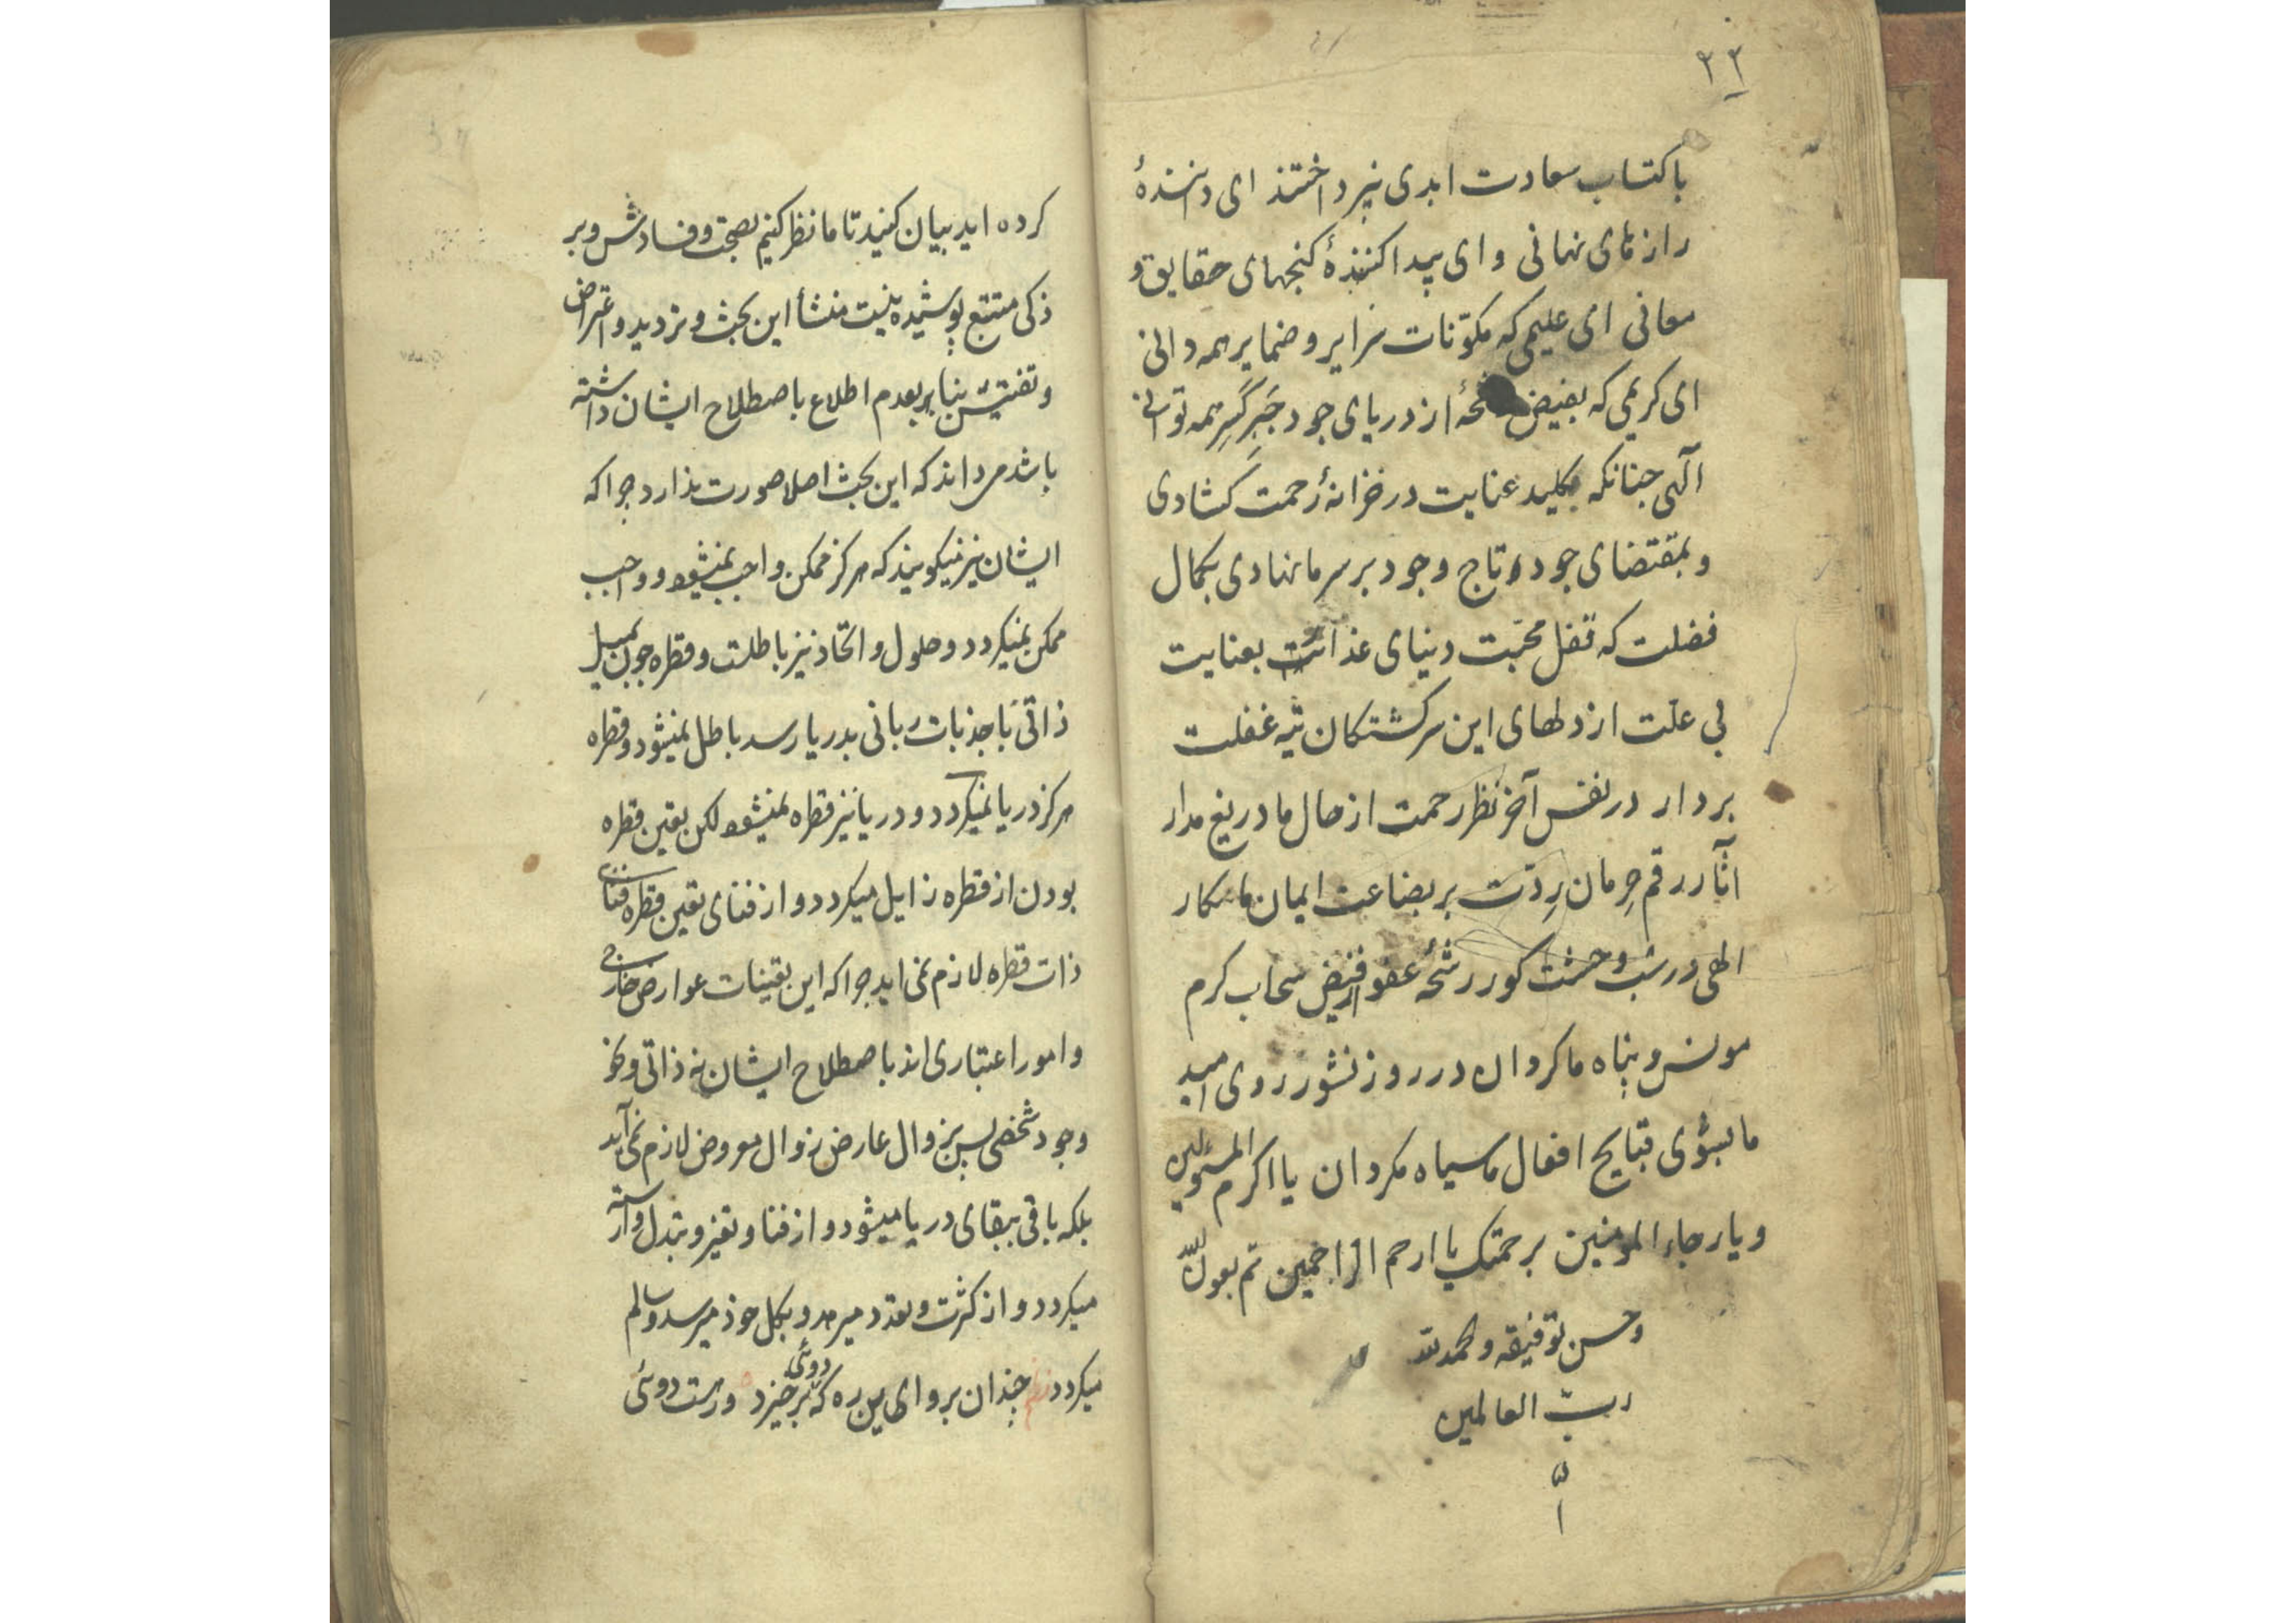 ۳۲
باکتساب سعادت ابدی نپرداختند ای دانندهٔ
رازهای نهانی و ای پیدا کنندهٔ کنجهای حقایق و
معانی ای علیمی که مکوّنات سرایر و ضمایر همه دانی
ای کریمی که بفیض از دریای جود جَبرِ کَسرِ همه توانی
آلهی جنانکه بکلید عنایت در خزانهٔ رحمت کشادی
و بمقتضای جود تاج وجود بر سر ما نهادی بکمال
فضلت که قفل محبّت دنیای بعنایت
بی علّت از دلهای این سرکشتکان تیه غفلت
بردار در نفس آخر نظر رحمت از حال ما دریغ مدار
آثار رقم حِرمان رِدّت بر بضاعت ایمان ما مکار
الهی در شب وحشت کور رشحهٔ عفو از فیض سحاب کرم
مونس و پناه ما کردان در روز نشور روی امید
ما بشؤی قبایح افعال ما سیاه مکردان یا اکرم المسئولین
و یا رجاء المومنین برحمتک یا ارحم الراحمین تم بعون الله
و حسن توفیقه و الحمد لله
ربّ العالمین
کرده اید بیان کنید تا ما نظر کنیم بصحت و فسادش و بر
ذکی متتبع پوشیده نیست منشأ این بحث و تردید و اعتراض
و تفتیش بنا بر بعدم اطلاع باصطلاح ایشان داشته
باشد می داند که این بحث اصلا صورت ندارد جرا که
ایشان نیز نیکویند که هرکز ممکن واجب نمیشود و واجب
ممکن نمیکردد و حلول و اتحاد نیز باطلست و قطره جون بمیل
ذاتی با جذبات ربانی بدریا رسد باطل نمیشود و قطره
هرکز دریا نمیکردد و دریا نیز قطره نمیشود لکن تعین قطره
بودن از قطره زایل میکردد و از فنای تعین قطره فنای
ذات قطره لازم نمی اید جرا که این تعینات عوارض خارجی
و امور اعتباری اند باصطلاح ایشان نه ذاتی و
وجود شخصی پس بزوال عارض زوال معروض لازم نمی آید
بلکه باقی ببقای دریا میشود و از فنا و تغیر و تبدل وارسته
میکردد و از کثرت و تعدد میرهد و بکل خود میرسد و سالم
میکردد نظم چندان برو ای این ره که دوئی برخیزد ورهست دوئی